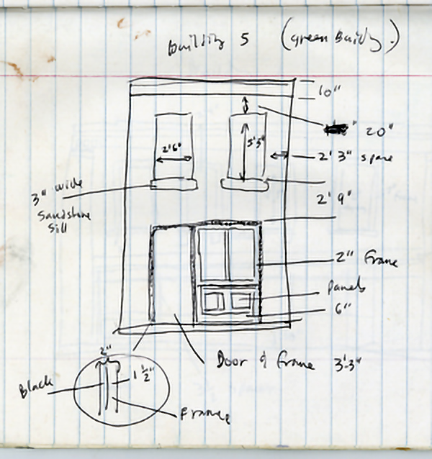 building 5 (green building)
10"
20"
2'6"
5'5"
2' 3" space
3" wide
Sandstone
Sill
2' 9"
2" Frame
Panels
6"
Door & Frame 3'-3"
2"
1 1/2"
Black
Frame